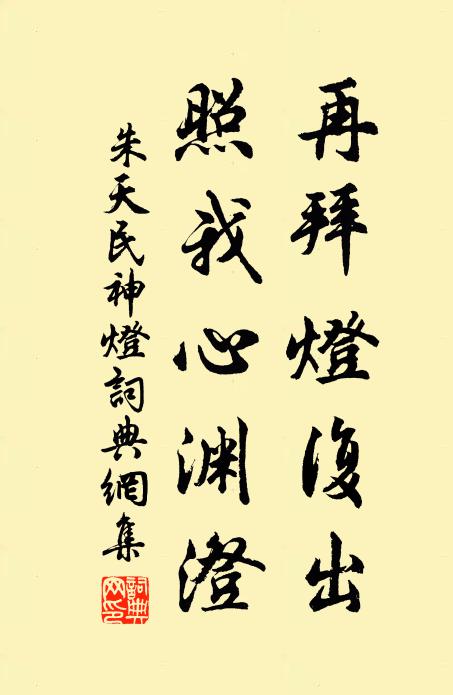 再拜燈復出
照我心淵澄
朱天民神燈詞典網集
詞典網印